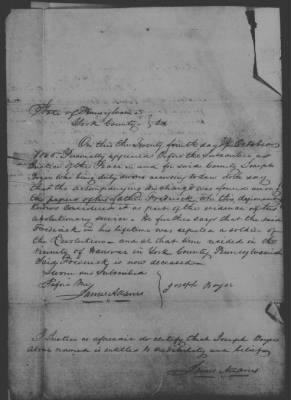 State of Pennsylvania
York County } SS
On this the Twenty fourth day of October
1855 Personally appeared before the Subscriber a
Justice of the Peace in and for said County Joseph
Boyer who being duly sworn according to law doth say
that the accompanying discharge was found among
the papers of his father Frederick
considered it as proof of the evidence of his
Revolutionary services. He further says that the said
Frederick in his lifetime was reputed a soldier of
the Revolution and at that time resided in the
vicinity of Hanover in York County Pennsylvania
Said Frederick is now deceased
Sworn and Subscribed
Before Me } Joseph Boyer
James Adams
I Justice as aforesaid do certify that Joseph Boyer
above named is entitled to credibility and belief
James Adams